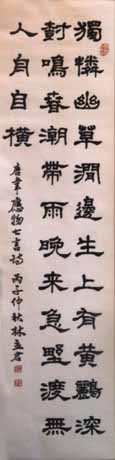 獨憐幽草澗邊生上有黃鸝深
樹鳴春潮帶雨晚来急野渡無
人舟自橫
唐韋應物七言詩 丙子仲秋林